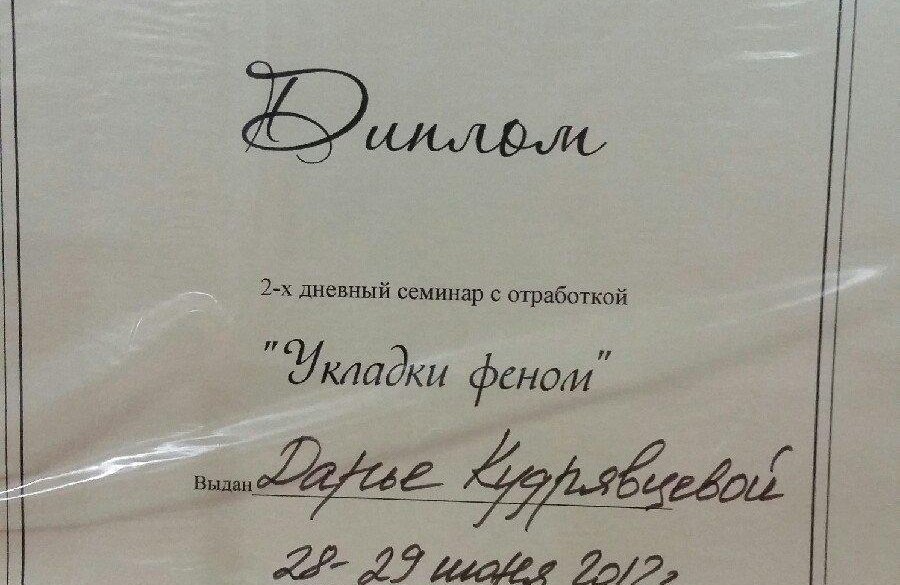 Диплом
2-х дневный семинар с отработкой
"Укладки феном"
Выдан Дарье Кудрявцевой
28-29 июня